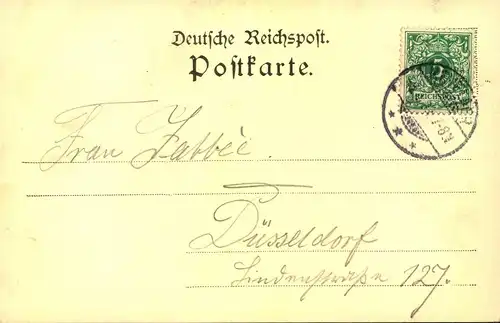 Deutsche Reichspost.
Postkarte.
5
REICHSPOST
7-8N
Frau Fabbée.
Düsseldorf
Lindenstraße 127.